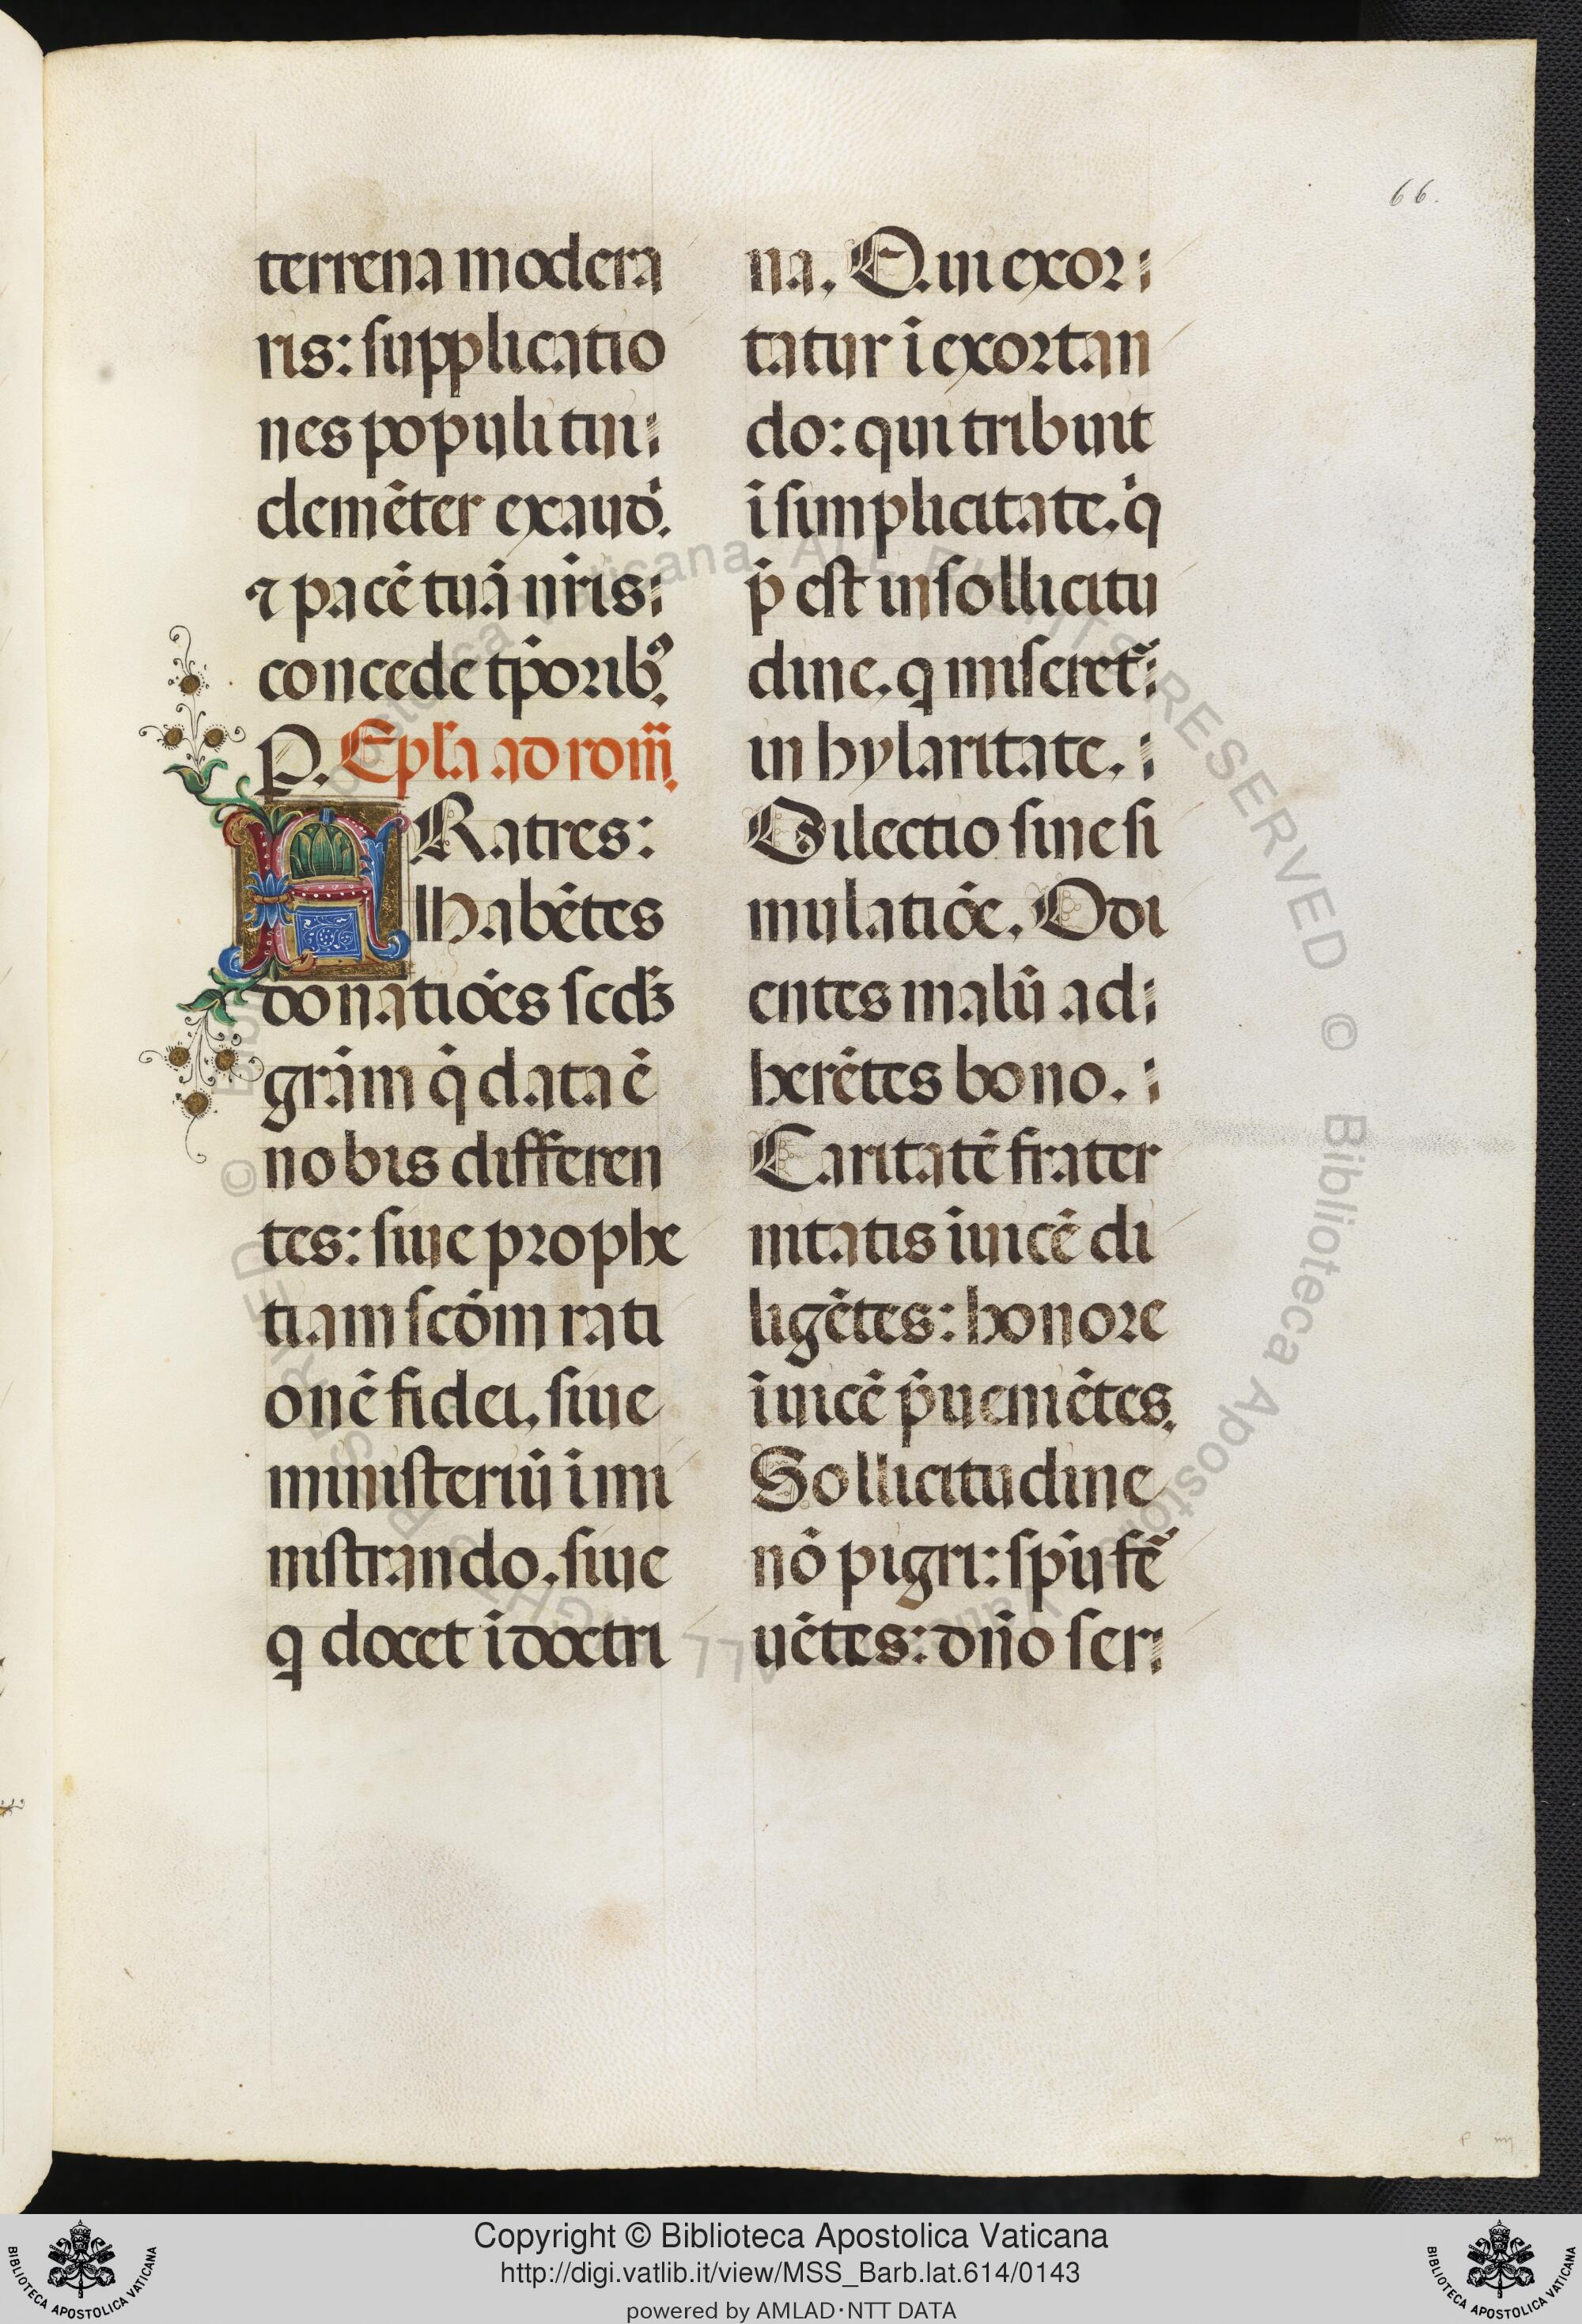 66.
terrena modera
ris: supplicatio
nes populi tui
clemēter exaudi.
⁊ pacē tuā nr̄is
concede tp̄oribꝰ.
P. Epl̄a ad rom̄.
FRatres:
Habētes
donatiōes scdꝫ
grām q̄ data ē
nobis differen
tes: siue prophe
tiam scōm rati
onē fidei, siue
ministeriū ī mi
nistrando, siue
q docet ī doctri
na. Qui exor
tatur ī exortan
do: qui tribuit
ī simplicitate, q
p̄ est in sollicitu
dine, q miseret̄
in hylaritate,
Dilectio sine si
mulatiōe. Odi
entes malū ad
herētes bono.
Caritatē frater
nitatis īuicē di
ligētes: honore
īuicē p̄uenietēs.
Sollicitudine
nō pigri: sp̄u fē
uētes: dn̄o ser
Copyright © Biblioteca Apostolica Vaticana
http://digi.vatlib.it/view/MSS_Barb.lat.614/0143
powered by AMLAD·NTT DATA
BIBLIOTECA APOSTOLICA VATICANA
BIBLIOTECA APOSTOLICA VATICANA